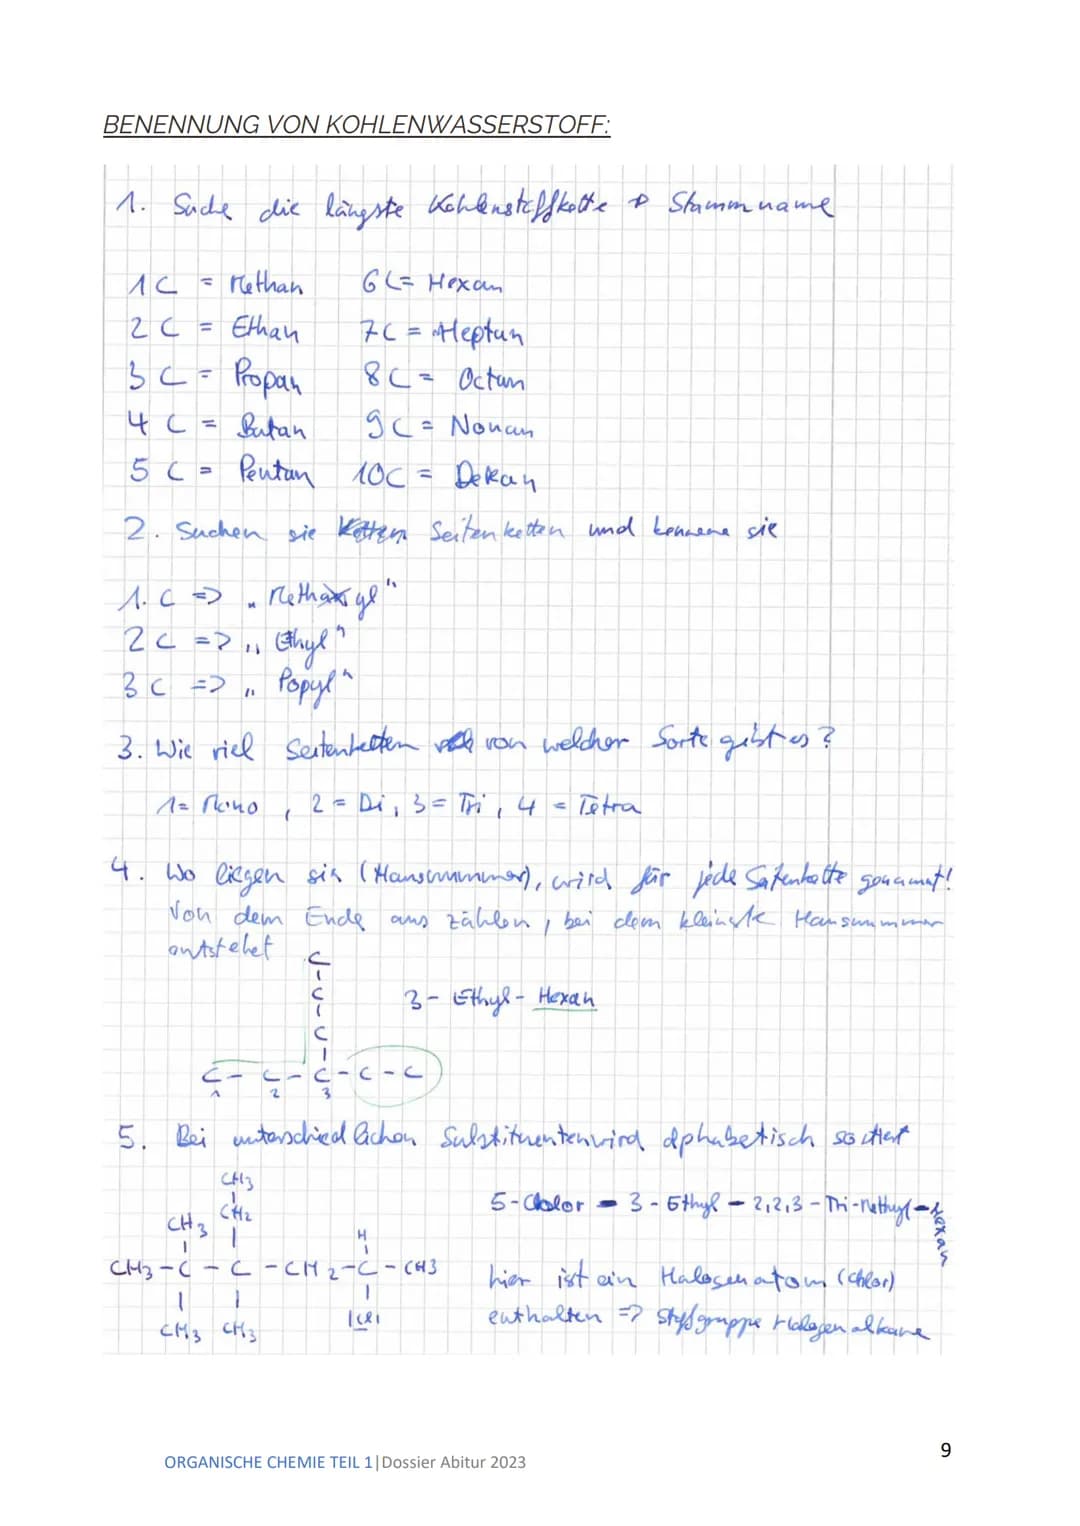 BENENNUNG VON KOHLENWASSERSTOFF:
1. Suche die längste Kohlenstoffkette → Stammname
1C = Methan 6C = Hexan
2C = Ethan 7C = Heptan
3C = Propan 8C = Octan
4C = Butan 9C = Nonan
5C = Pentan 10C = Dekan
2. Suchen sie Seitenketten und kennene sie
1.C => "Methyl"
2C => "Ethyl"
3C => "Popyl"
3. Wie viel Seitenketten von welcher Sorte gibt es?
1 = Mono, 2 = Di, 3 = Tri, 4 = Tetra
4. Wo liegen sie (Hausnummer), wird für jede Seitenkette genannt!
Von dem Ende aus zählen, bei dem kleinste Hausnummer
entstehet
C
C
3-Ethyl-Hexan
C
C - C - C - C - C
1 2 3
5. Bei unterschiedlichen Substituenten wird alphabetisch sortiert
CH3
CH3 CH2
5-Chlor - 3-Ethyl - 2,2,3-Tri-Methyl-Hexan
H
CH3 - C - C - CH2 - C - CH3
hier ist ein Halogenatom (Chlor)
CH3 CH3 |Cl|
enthalten => Stoffgruppe Halogenalkane
ORGANISCHE CHEMIE TEIL 1|Dossier Abitur 2023
9